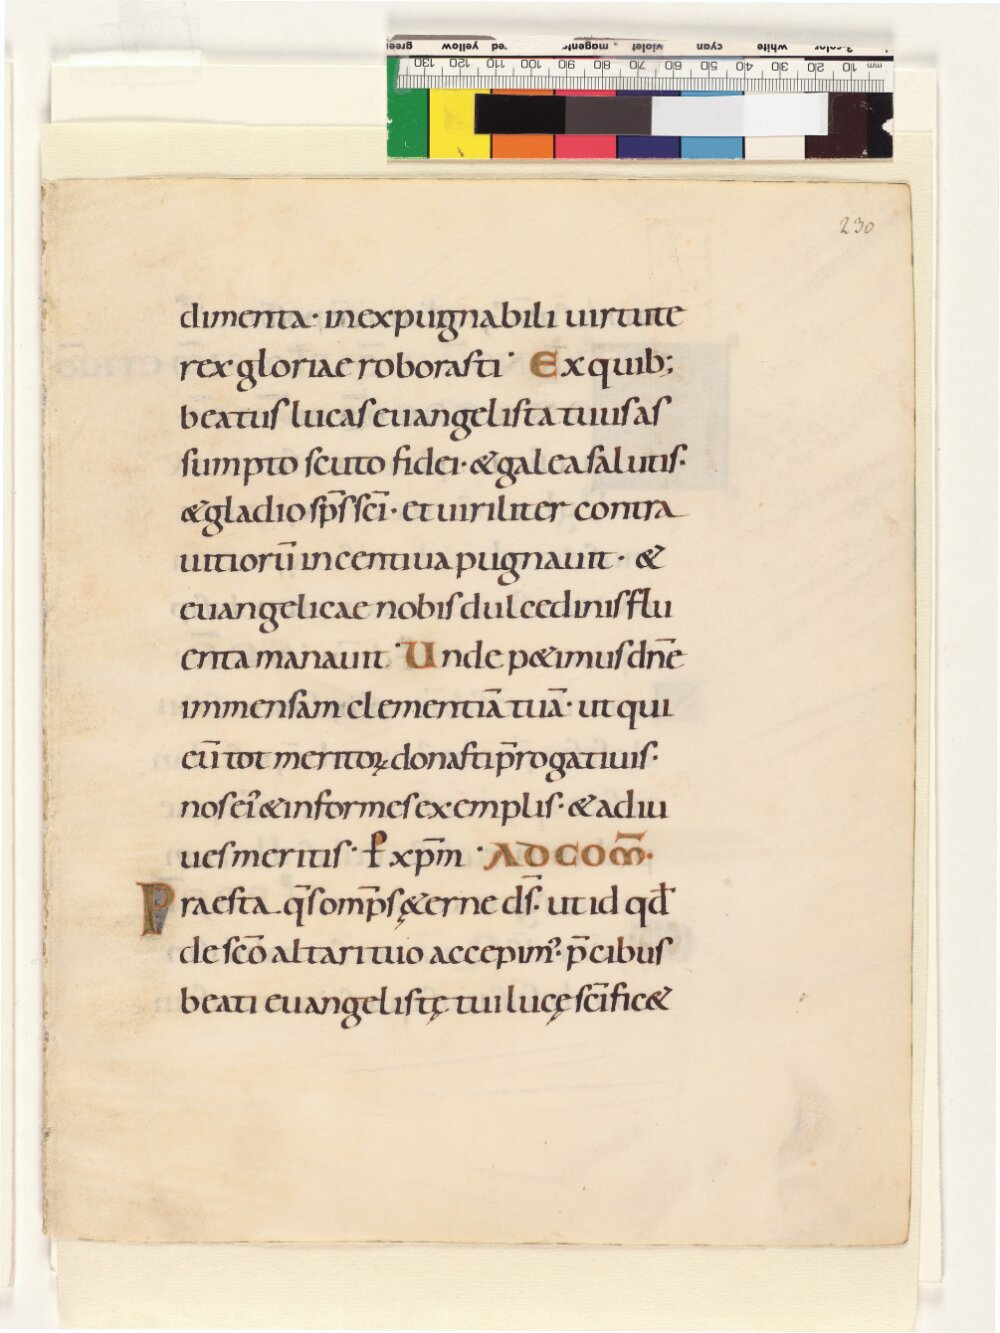 230
dimenta· inexpugnabili uirtute
rex gloriae roborasti· Ex quib;
beatus lucas euangelista tuus as
sumpto scuto fidei· & galea salutis·
& gladio sp̄s sc̄i· et uiriliter contra
uitiorū incentiua pugnauit· &
euangelicae nobis dulcedinis flu
enta manauit· Unde p&imus dn̄e
immensam clementiā tuā· ut qui
eū tot meritoꝝ donasti p̄rogatiuis·
nos ei᷒ & informes exemplis· & adiu
ues meritis· P xp̄m · AD COM̄·
Praesta q̄s omp̄s &erne ds̄· ut id qđ
de sc̄o altari tuo accepim᷒· p̄cibus
beati euangelistę tui lucę sc̄ific&